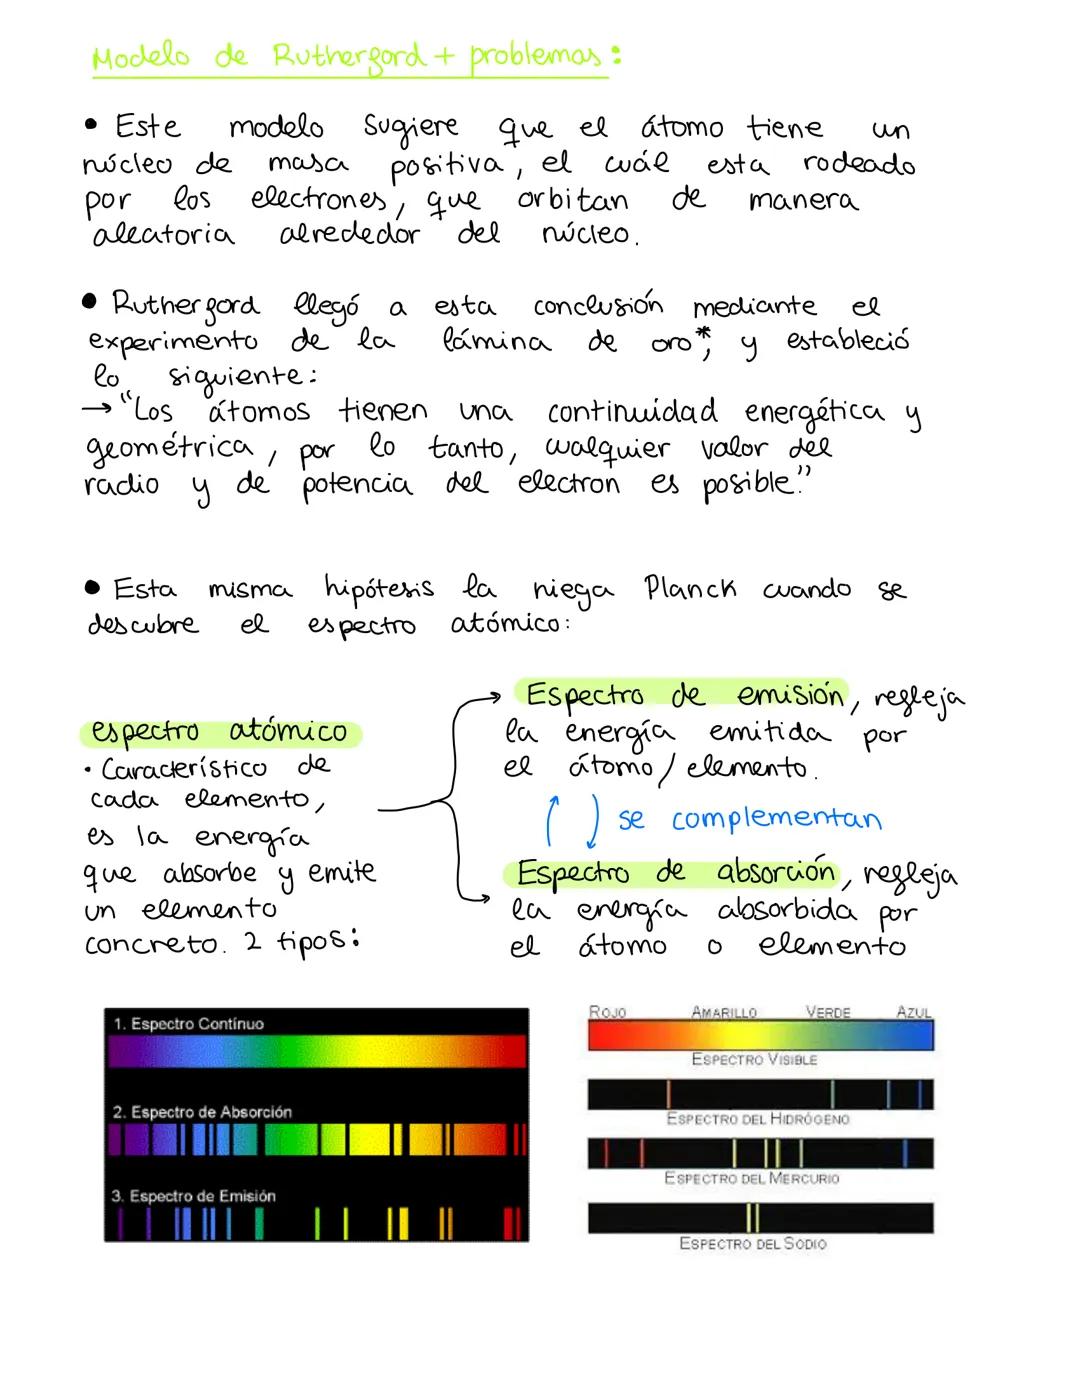 Modelo de Rutherford + problemas:
• Este modelo sugiere que el átomo tiene un
núcleo de masa positiva, el cuál esta rodeado
por los electrones, que orbitan de manera
aleatoria alrededor del núcleo.
• Rutherford llegó a esta conclusión mediante el
experimento de la lámina de oro*, y estableció
lo siguiente:
→ "Los átomos tienen una continuidad energética y
geométrica, por lo tanto, cualquier valor del
radio y de potencia del electron es posible."
• Esta misma hipótesis la niega Planck cuando se
descubre el espectro atómico:
espectro atómico
• Característico de
cada elemento,
es la energía
que absorbe y emite
un elemento
concreto. 2 tipos:
Espectro de emisión, refleja
la energía emitida por
el átomo/elemento.
se complementan
Espectro de absorción, refleja
la energía absorbida por
el átomo o elemento
1. Espectro Contínuo
2. Espectro de Absorción
3. Espectro de Emisión
ROJO AMARILLO VERDE AZUL
ESPECTRO VISIBLE
ESPECTRO DEL HIDRÓGENO
ESPECTRO DEL MERCURIO
ESPECTRO DEL SODIO